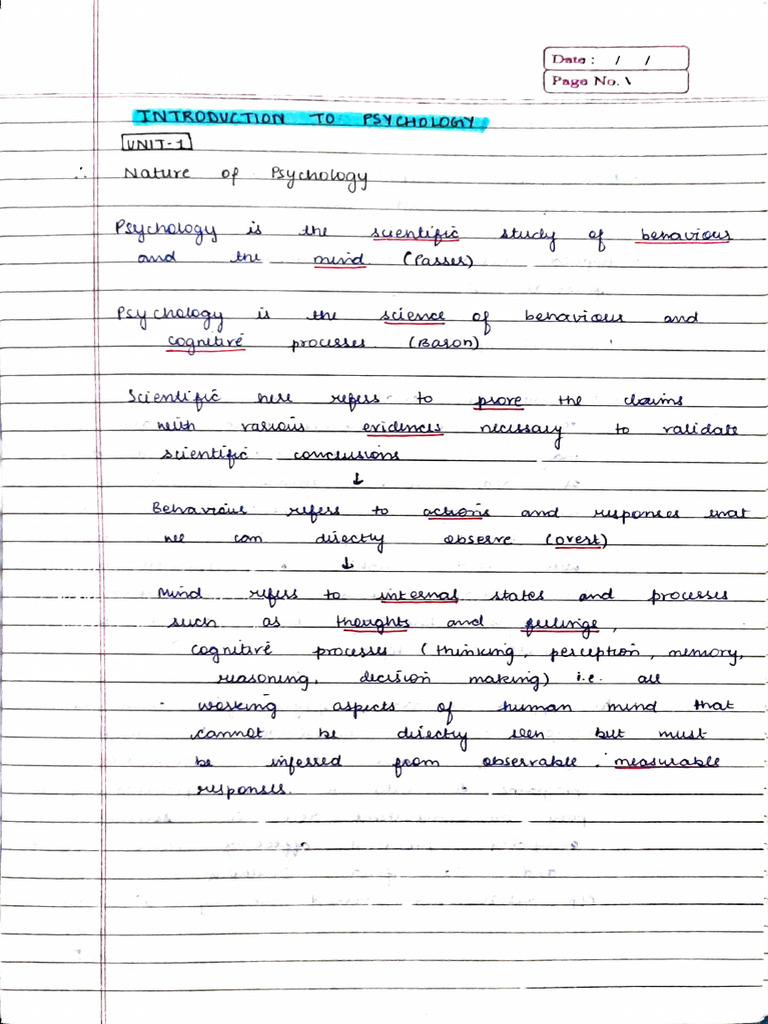 Date : / /
Page No. 1
INTRODUCTION TO PSYCHOLOGY
UNIT-1
∴ Nature of Psychology
Psychology is the scientific study of behaviour
and the mind (Passer)
Psychology is the science of behaviour and
cognitive processes (Baron)
Scientific here refers to prove the claims
with various evidences necessary to validate
scientific conclusions
↓
Behaviour refers to actions and responses that
we can directly observe (overt)
↓
Mind refers to internal states and processes
such as thoughts and feelings,
cognitive processes (thinking, perception, memory,
reasoning, decision making) i.e. all
working aspects of human mind that
cannot be directly seen but must
be inferred from observable, measurable
responses.